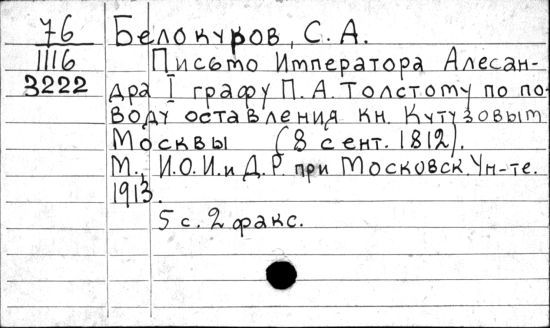 76 Белокуров, С. А.
1116 Письмо Императора Алесан-
3222 дра I графу П. А. Толстому по по-
воду оставления кн. Кутузовым
Москвы (8 сент. 1812).
М., И.О.И. и Д.Р. при Московск. Ун-те.
1913.
5 с. 2 факс.